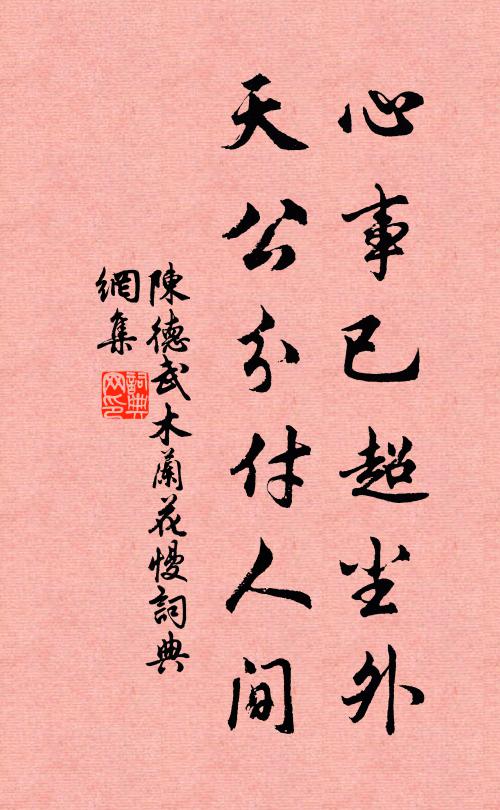 心事已超尘外
天公分付人間
陳德武木蘭花慢詞典
網集
詞典
网印